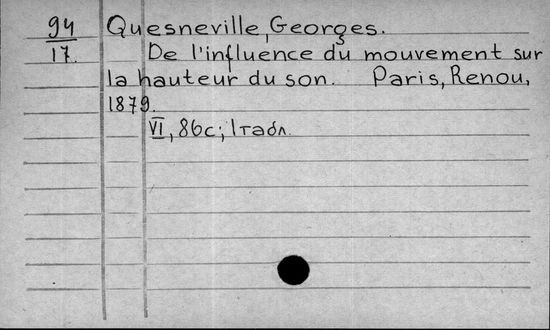 94
17.
Quesneville, Georges.
De l'influence du mouvement sur
la hauteur du son. Paris, Renou,
1879.
VI, 86c; 1 табл.